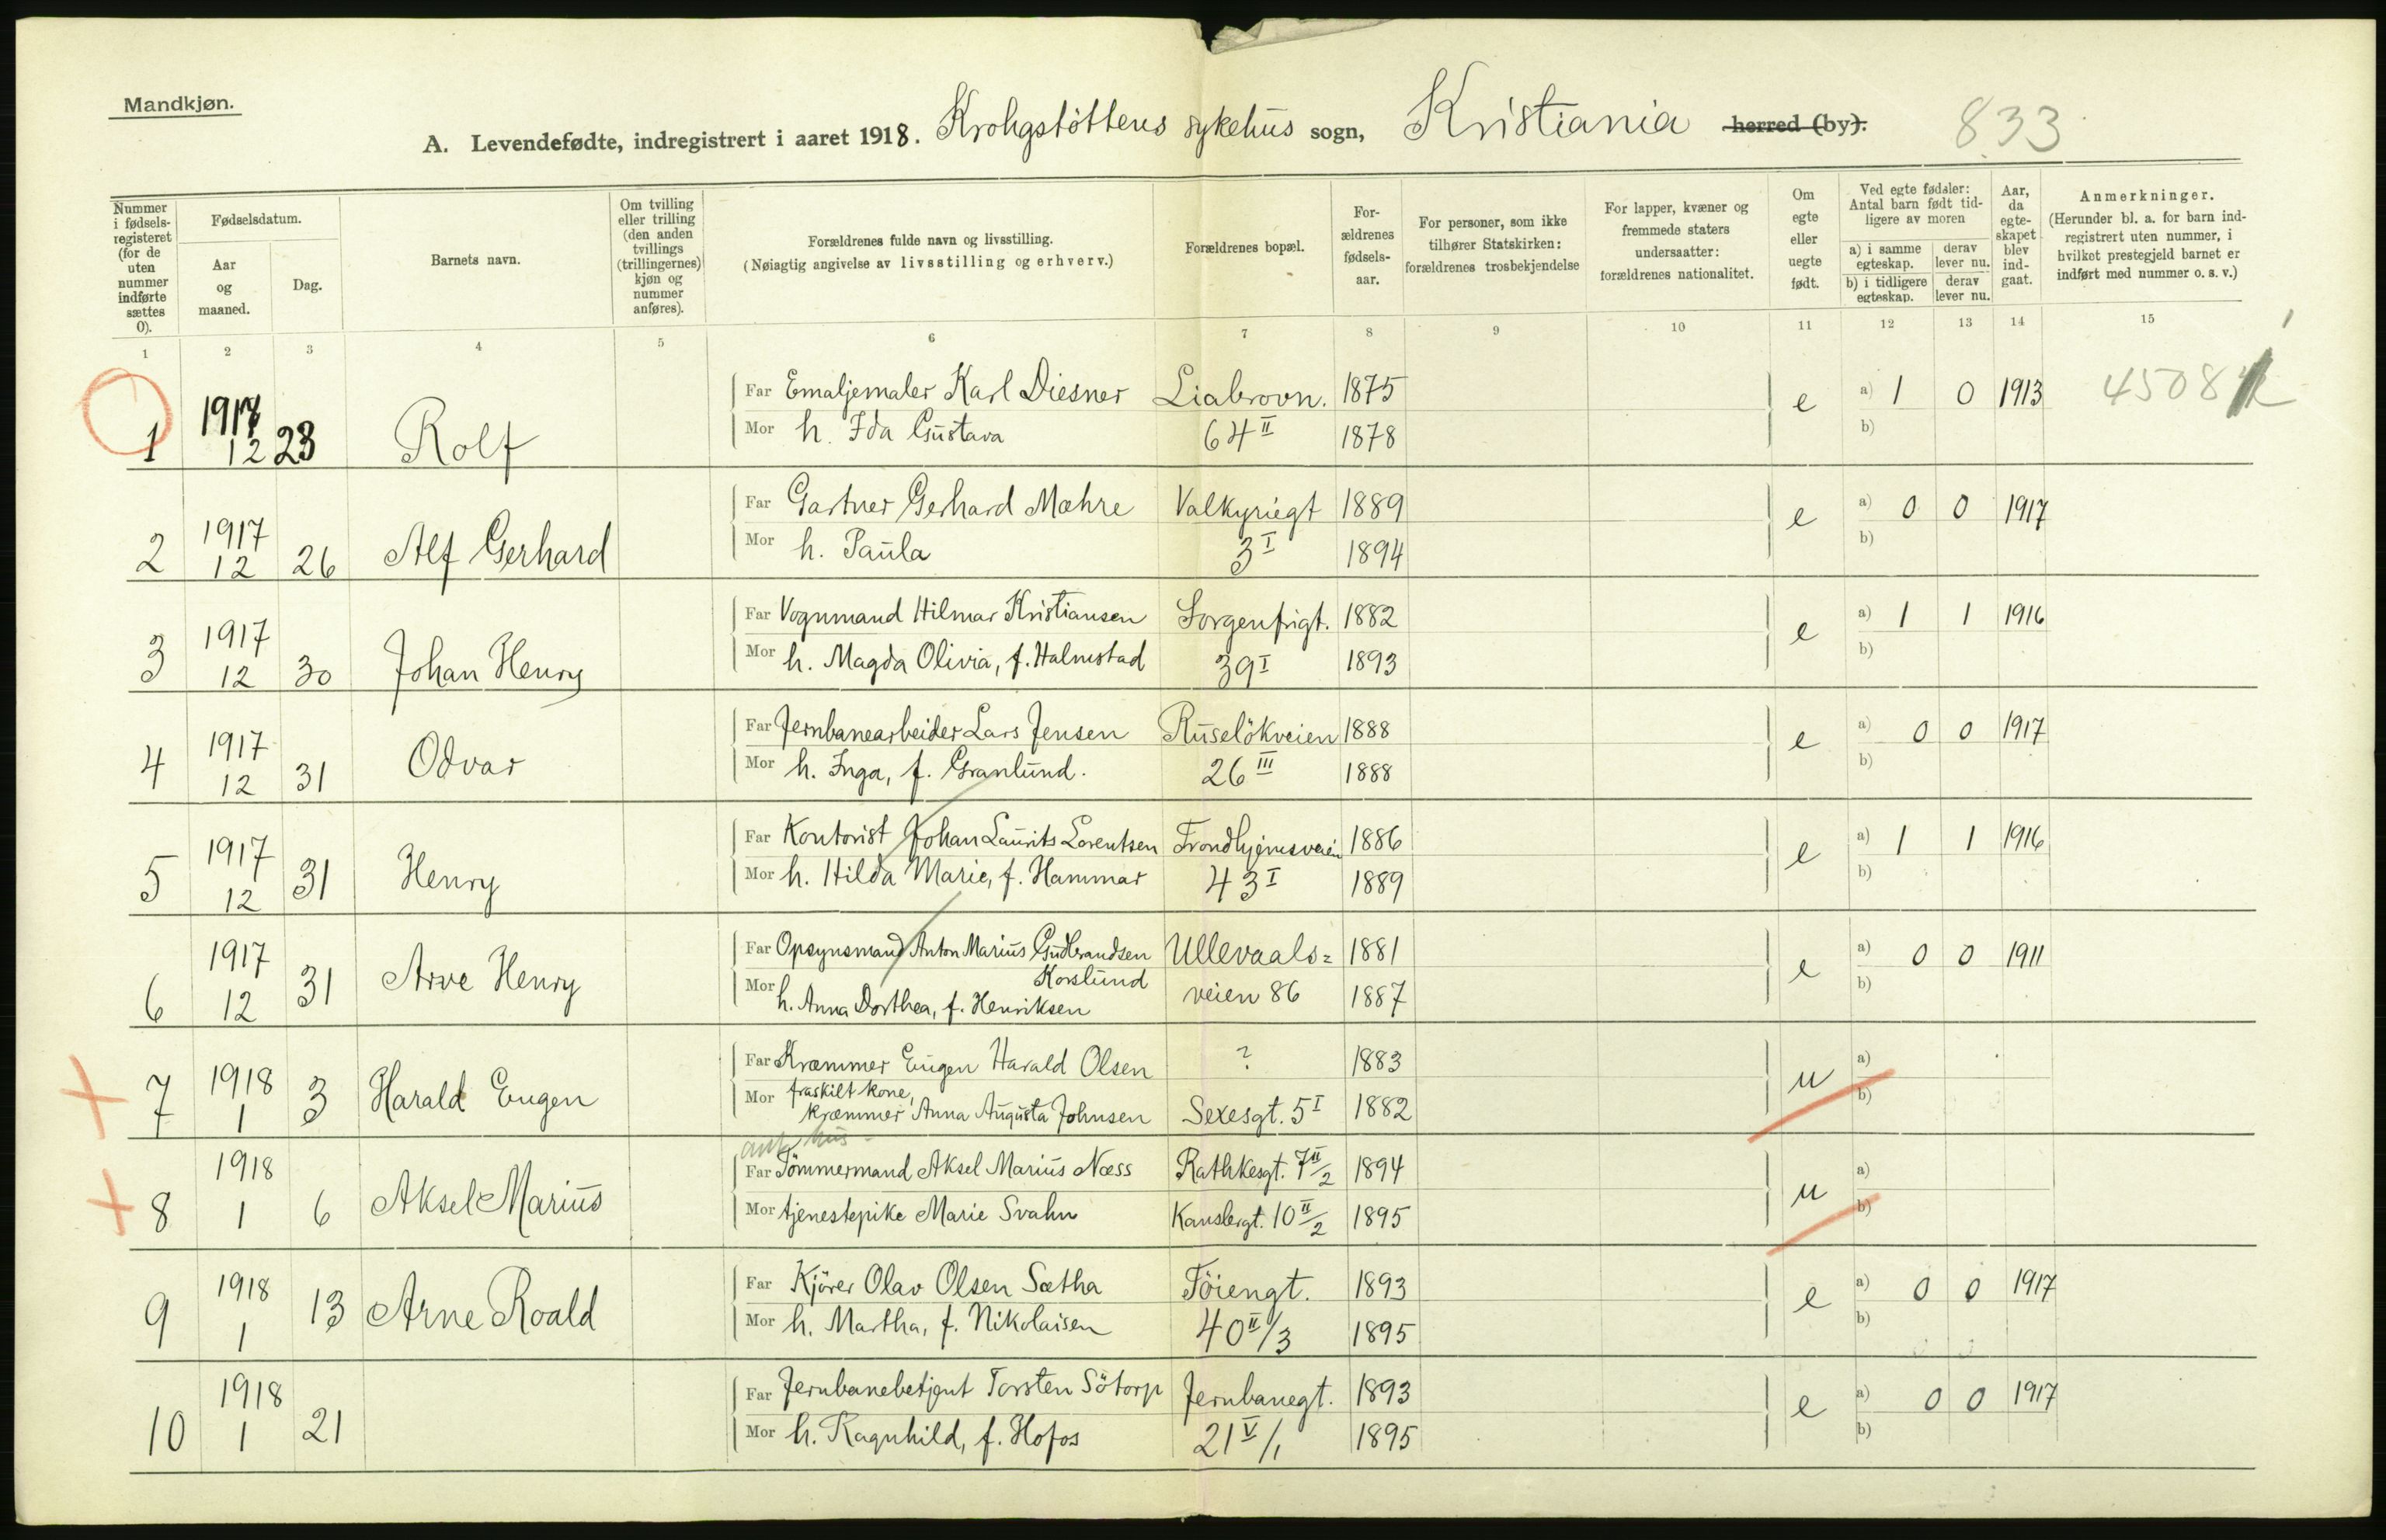 Mandkjøn.
A. Levendefødte, indregistrert i aaret 1918. Krohgstöttens sykehus sogn, Kristiania herred (by). 833
Nummer i fødsels-registeret (for de uten nummer indførte sættes 0).
Fødselsdatum.
Aar og maaned.
Dag.
Barnets navn.
Om tvilling eller trilling (den anden tvillings (trillingernes) kjøn og nummer anføres).
Forældrenes fulde navn og livsstilling.
(Nøiagtig angivelse av livsstilling og erhverv.)
Forældrenes bopæl.
For-ældrenes fødsels-aar.
For personer, som ikke tilhører Statskirken: forældrenes trosbekjendelse
For lapper, kvæner og fremmede staters undersaatter: forældrenes nationalitet.
Om egte eller uegte født.
Ved egte fødsler: Antal barn født tid-ligere av moren
a) i samme egteskap. derav lever nu.
b) i tidligere egteskap. derav lever nu.
Aar, da egte-skapet blev ind-gaat.
Anmerkninger.
(Herunder bl. a. for barn ind-registrert uten nummer, i hvilket prestegjeld barnet er indført med nummer o. s. v.)
1 2 3 4 5 6 7 8 9 10 11 12 13 14 15
Far Emaljemaler Karl Diesner Liabrovn. 1875 e a) 1 0 1913 4508
1 1917 12 23 Rolf Mor h. Ida Gustava 64 II 1878 b)
Far Gartner Gerhard Mæhre Valkyriegt 1889 e a) 0 0 1917
2 1917 12 26 Alf Gerhard Mor h. Paula 3 I 1894 b)
Far Vognmand Hilmar Kristiansen Sorgenfrigt. 1882 e a) 1 1 1916
3 1917 12 30 Johan Henry Mor h. Magda Olivia, f. Halmstad 39 I 1893 b)
Far Jernbanearbeider Lars Jensen Ruselökveien 1888 e a) 0 0 1917
4 1917 12 31 Odvar Mor h. Inga, f. Granlund. 26 III 1888 b)
Far Kontorist Johan Laurits Lorentsen Trondhjemsveien 1886 e a) 1 1 1916
5 1917 12 31 Henry Mor h. Hilda Marie, f. Hammar 43 I 1889 b)
Far Opsynsmand Anton Marius Gudbrandsen Korslund Ullevaals= 1881 e a) 0 0 1911
6 1917 12 31 Arve Henry Mor h. Anna Dorthea, f. Henriksen veien 86 1887 b)
Far Kræmmer Eugen Harald Olsen ? 1883 u a)
7 1918 1 3 Harald Eugen Mor fraskilt kone, kræmmer Anna Augusta Johnsen Sexesgt. 5 I 1882 b)
Far Tömmermand Aksel Marius Næss Rathkesgt. 7 II/2 1894 u a)
8 1918 1 6 Aksel Marius Mor tjenestepike Marie Svahn Kanslergt. 10 II/2 1895 b)
Far Kjörer Olav Olsen Sætha Töiengt. 1893 e a) 0 0 1917
9 1918 1 13 Arne Roald Mor h. Martha, f. Nikolaisen 40 II/3 1895 b)
Far Jernbanebetjent Torsten Sötorp Jernbanegt. 1893 e a) 0 0 1917
10 1918 1 21 Mor h. Ragnhild, f. Hofos 21 V/1 1895 b)